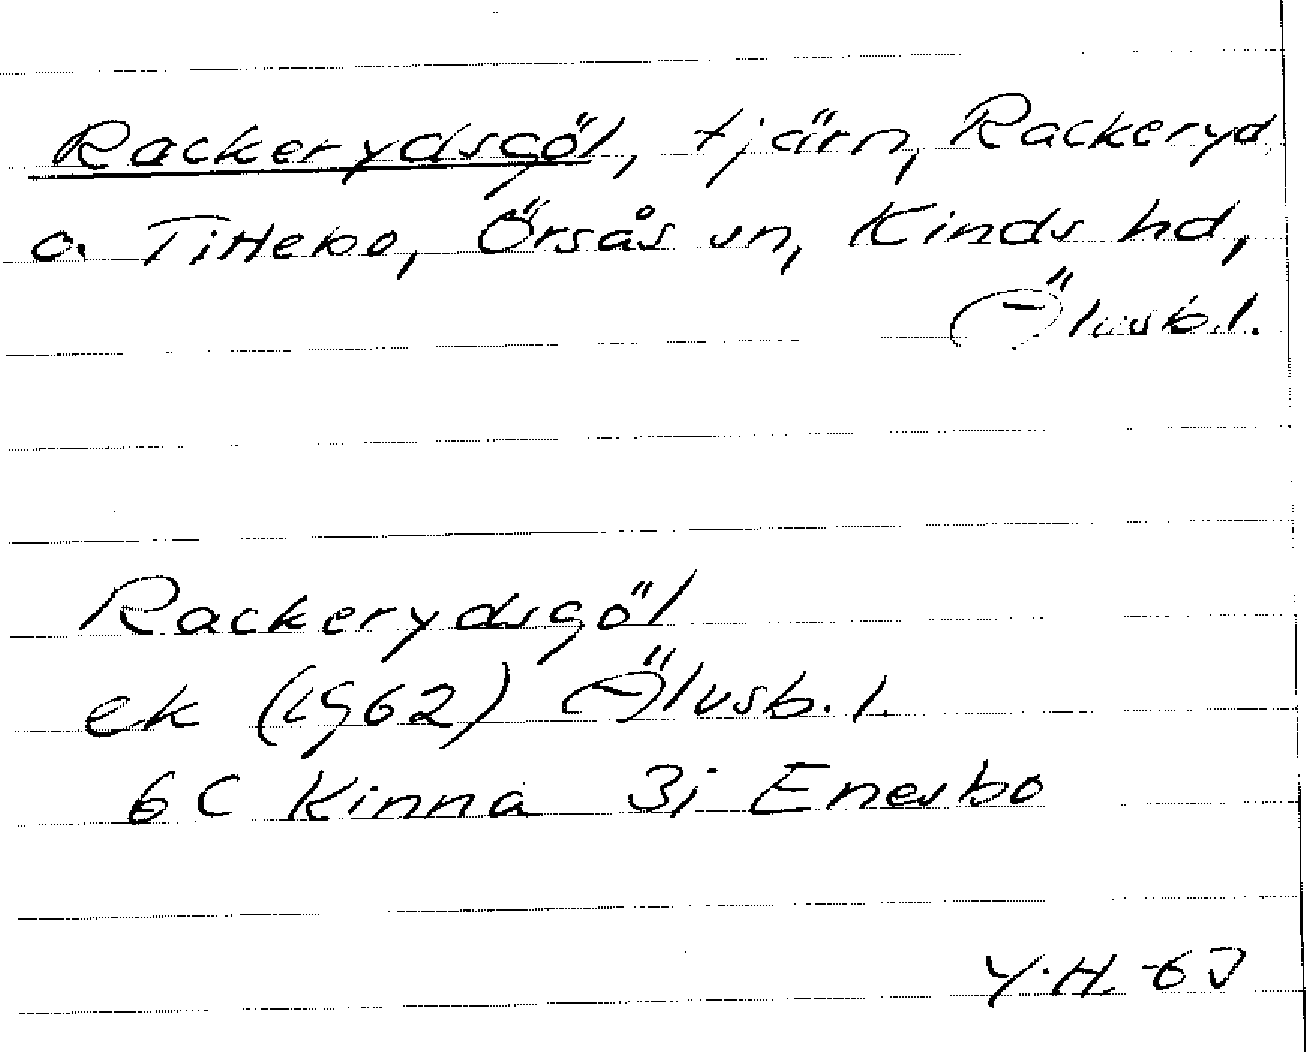 Rackerydsgöl, tjärn, Rackeryd
o. Tittebo, Örsås sn, Kinds hd,
Älvsb.l.
Rackerydsgöl
ek (1962) Älvsb.l.
6C Kinna 3j Enesbo
Y.H. -63